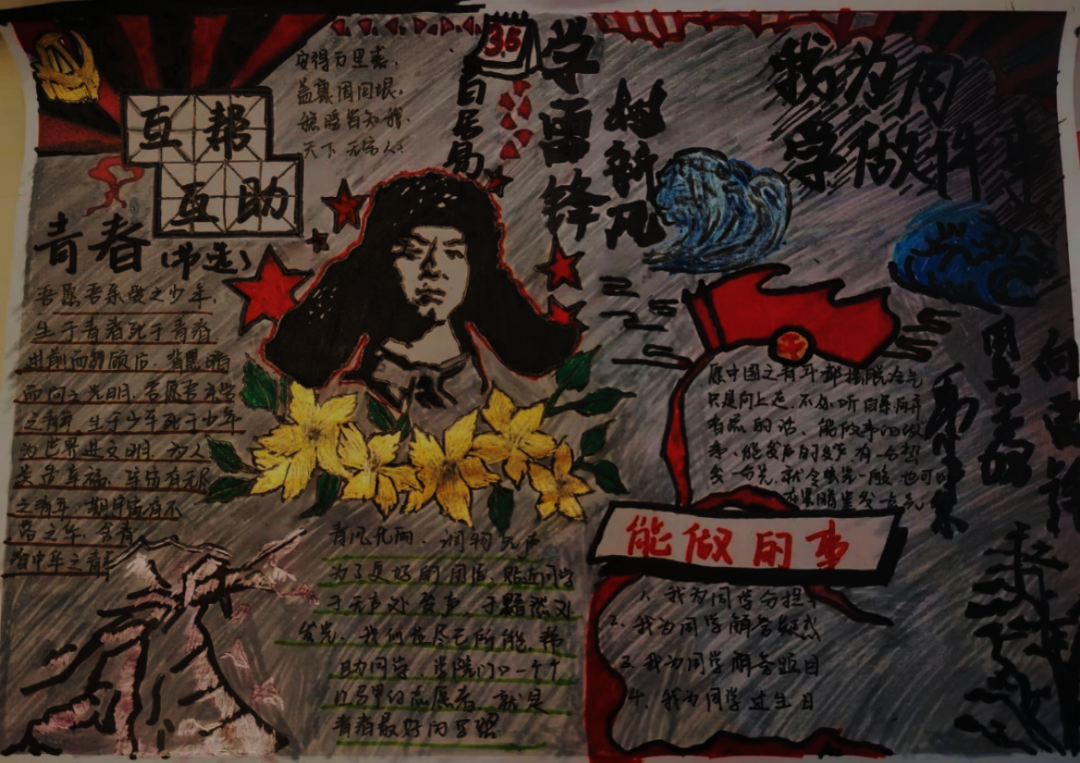 互帮
互助
安得万里裘，
盖裹周四垠。
稳暖皆如我，
天下无寒人。
白居易
3.5
学雷锋
树新风
我为同
学做件事
青春（节选）
吾愿吾亲爱之少年，
生于青春死于青春
进前而勿顾后，背黑暗
而向之光明，吾愿吾亲
之青年，生于少年死于少年
为世界进文明，为人
类造幸福，
之青年，
之年，
春中华之青春
愿中国之青年都摆脱冷气
只是向上走，不必听自暴自弃
者流的话，能做事的做
事，能发声的发声，有一分热
发一分光，就令萤火一般，也可以
在黑暗里发一点光
向雷锋
同志学习
毛泽东
春风化雨，润物无声
为了更好的团结，贴近同学
于无声处发声，于黯淡处
发光，我们应尽己所能，帮
助同学，学院门口一个个
的志愿者，就是
青春最好的写照
能做的事
1、我为同学分担
2、我为同学解答疑惑
3、我为同学解答题目
4、我为同学过生日